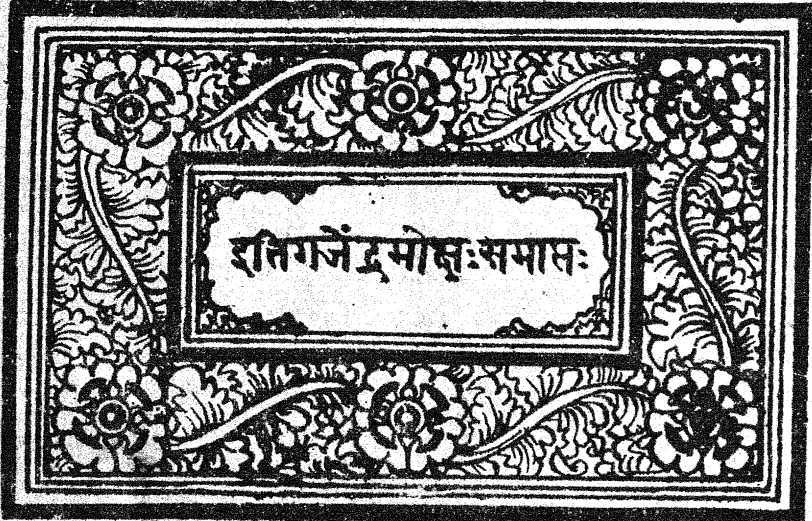 इतिगजेंद्रमोक्षःसमाप्तः